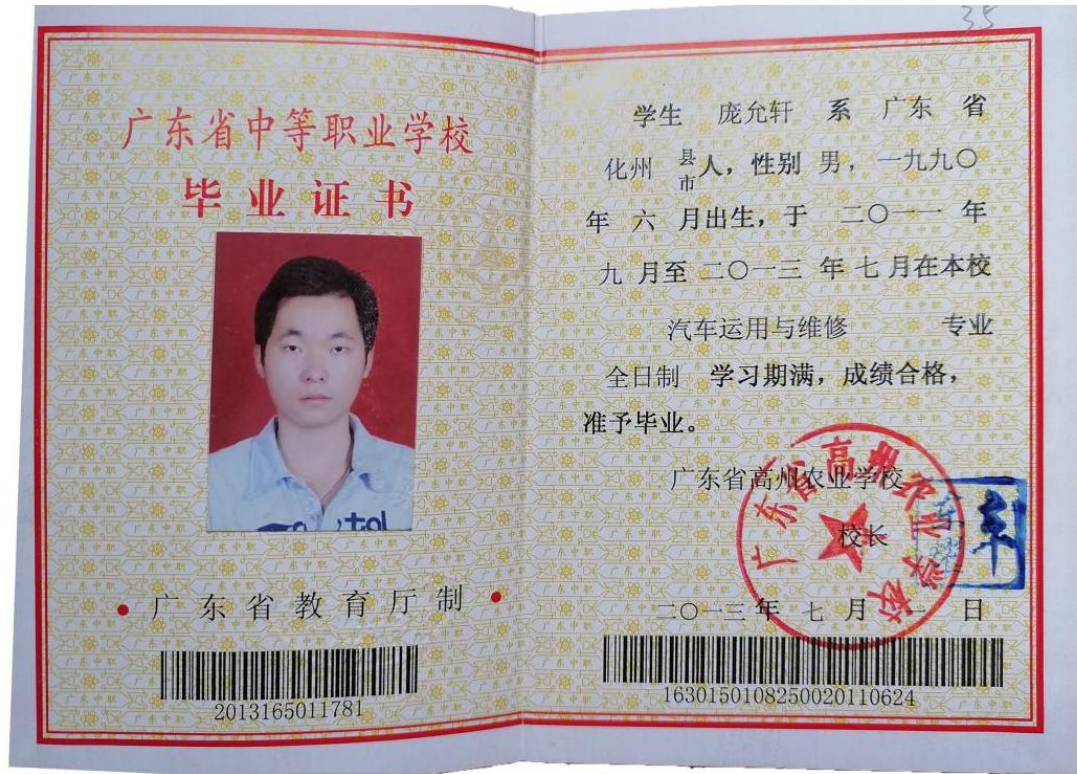 35
广东省中等职业学校
毕业证书
tal
广东省教育厅制
2013165011781
学生 庞允轩 系 广东 省
化州 县市人，性别 男， 一九九〇
年 六 月出生，于 二〇一一 年
九 月至 二〇一三 年 七 月在本校
汽车运用与维修 专业
全日制 学习期满，成绩合格，
准予毕业。
广东省高州农业学校
校长
二〇一三年 七 月 一 日
广东省高州农业学校
1630150108250020110624